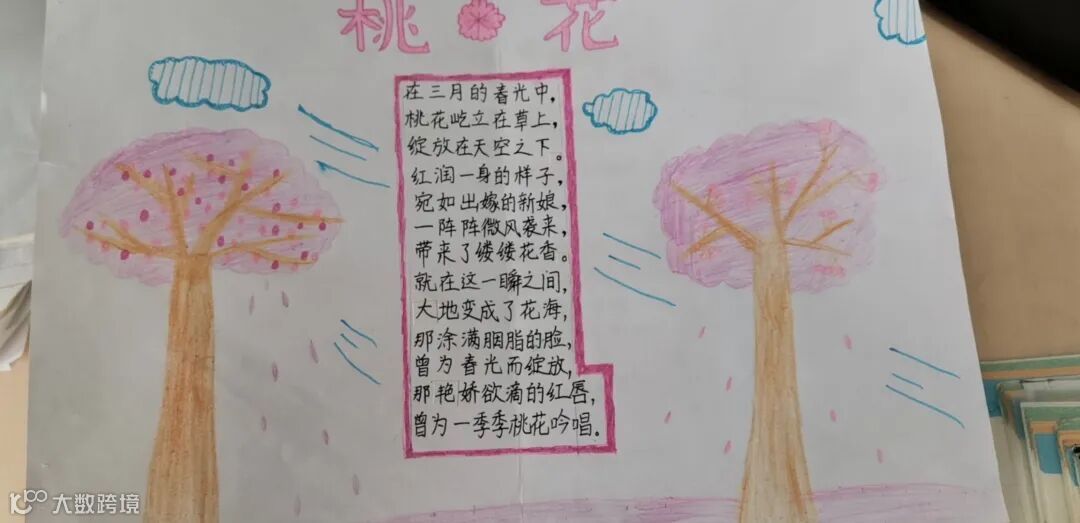 桃花
在三月的春光中,
桃花屹立在草上,
绽放在天空之下。
红润一身的样子,
宛如出嫁的新娘,
一阵阵微风袭来,
带来了缕缕花香。
就在这一瞬之间,
大地变成了花海,
那涂满胭脂的脸,
曾为春光而绽放,
那艳娇欲滴的红唇,
曾为一季季桃花吟唱。
大数跨境